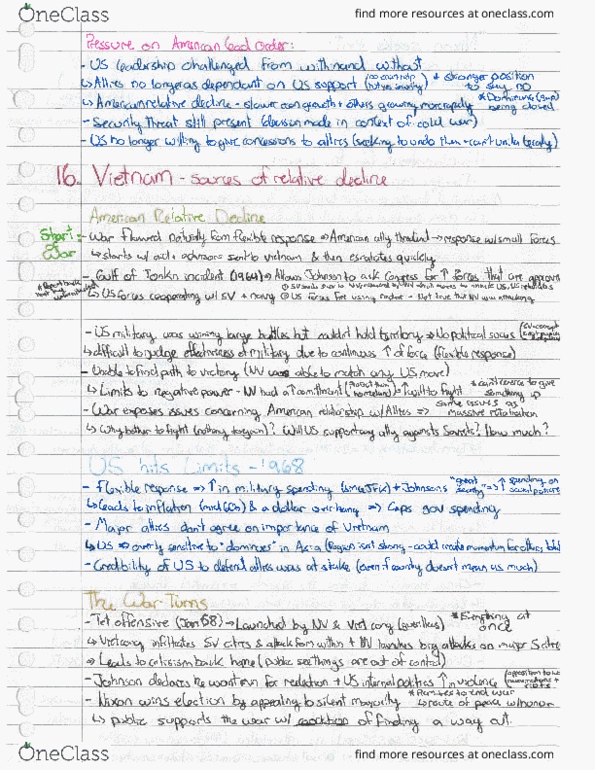 OneClass
find more resources at oneclass.com
Pressure on American Lead Order:
- US leadership challenged from within and without
↳ Allies no longer as dependant on US support (no can help but yes security) + stronger position to say no
↳ American relative decline - slower econ growth + others growing more rapidly * Domining (gap) being closed
- Security threat still present (decision made in context of cold war)
- US no longer willing to give concessions to allies (seeking to undo them + can't unilaterally)
16. Vietnam - sources of relative decline
American Relative Decline
Start: War
- War flowed naturally from flexible response → American ally threatened → response w/ small forces
↳ starts w/ advisors sent to Vietnam & then escalates quickly
- Gulf of Tonkin incident (1964) → Allows Johnson to ask Congress for ↑ forces that are approved
↳ US forces cooperating w/ SV + navy
- US military was winning large battles but couldn't hold territory → No political success
↳ difficult to judge effectiveness of military due to continuous ↑ of force (flexible response)
- Unable to find path to victory (NV was able to match any US move)
↳ Limits to negative power - NV had a ↑ commitment (protecting homeland) ↑ will to fight * can't coerce to give something up
- War exposes issues concerning American relationship w/ Allies → same issues as massive retaliation
↳ Why bother to fight (nothing to gain)? Will US support any ally against Soviets? How much?
US hits Limits - 1968
- Flexible response → ↑ in military spending (since JFK) + Johnson's "great society" → ↑ spending on social policies
↳ Leads to inflation (mid 60s) & a dollar overhang → Caps gov spending
- Major allies don't agree on importance of Vietnam
↳ US → overly sensitive to "dominoes" in Asia (Region isn't strong - could create momentum for others
- Credibility of US to defend allies was at stake (even if country doesn't mean us much)
The War Turns
- Tet offensive (Jan 68) → Launched by NV & Viet cong (guerillas) * Everything at once
↳ Viet cong infiltrates SV cities & attack from within + NV launches big attacks on major S cities
→ Leads to criticism back home (public see things are out of control)
- Johnson declares he won't run for reelection + US internal politics ↑ in violence (opposition to war movement + riots)
- Nixon wins election by appealing to silent majority * Promises to end war ↳ create peace w/ honor
↳ public supports the war w/ condition of finding a way out.
OneClass
find more resources at oneclass.com